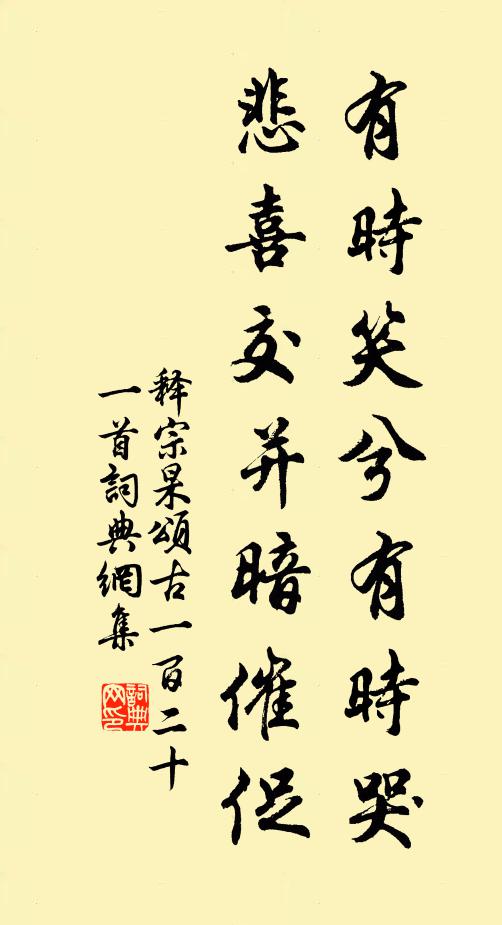 有時笑兮有時哭
悲喜交并暗催促
释宗杲頌古一百二十
一首詞典網集
詞典
网印